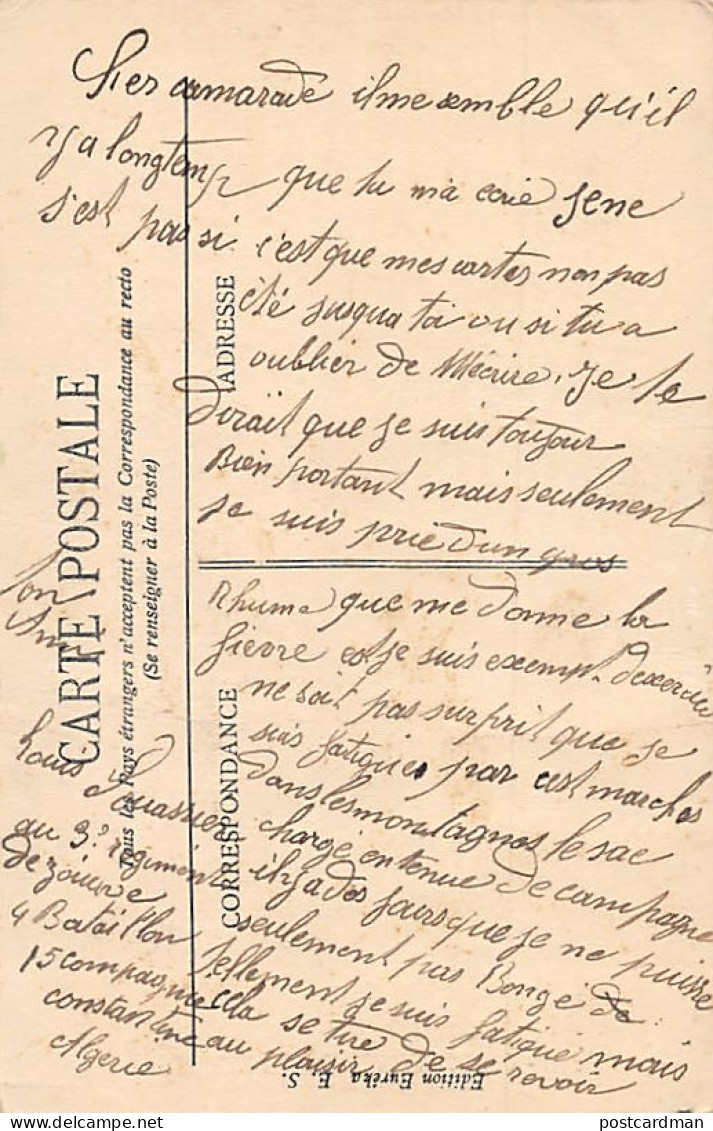 Cher camarade il me semble qu'il
y a longtemp que tu m'a ecrie Je ne
s'est pas si c'est que mes cartes non pas
été jusqua toi ou si tu a
oublier de Mécrire. Je te
dirait que je suis toujour
Bien portant mais seulement
je suis prie d'un gros
Rhume que me donne la
fievre et je suis exempt. d'exercice
ne soit pas surprit que je
suis fatiguer par cest marches
dans les montagnes le sac
chargé en tenue de campagne
il y a des jours que je ne puisse
seulement pas Bougé de
tellement je suis fatigué mais
cela se tire de se revoir
au plaisir
Ton
Ami
Louis
au 3e régiment
de zouave
4 Bataillon
15 compagnie
constantine
Algerie
CARTE POSTALE
Tous les Pays étrangers n'acceptent pas la Correspondance au recto
(Se renseigner à la Poste)
CORRESPONDANCE
ADRESSE
Edition Eureka E. S.
postcardman